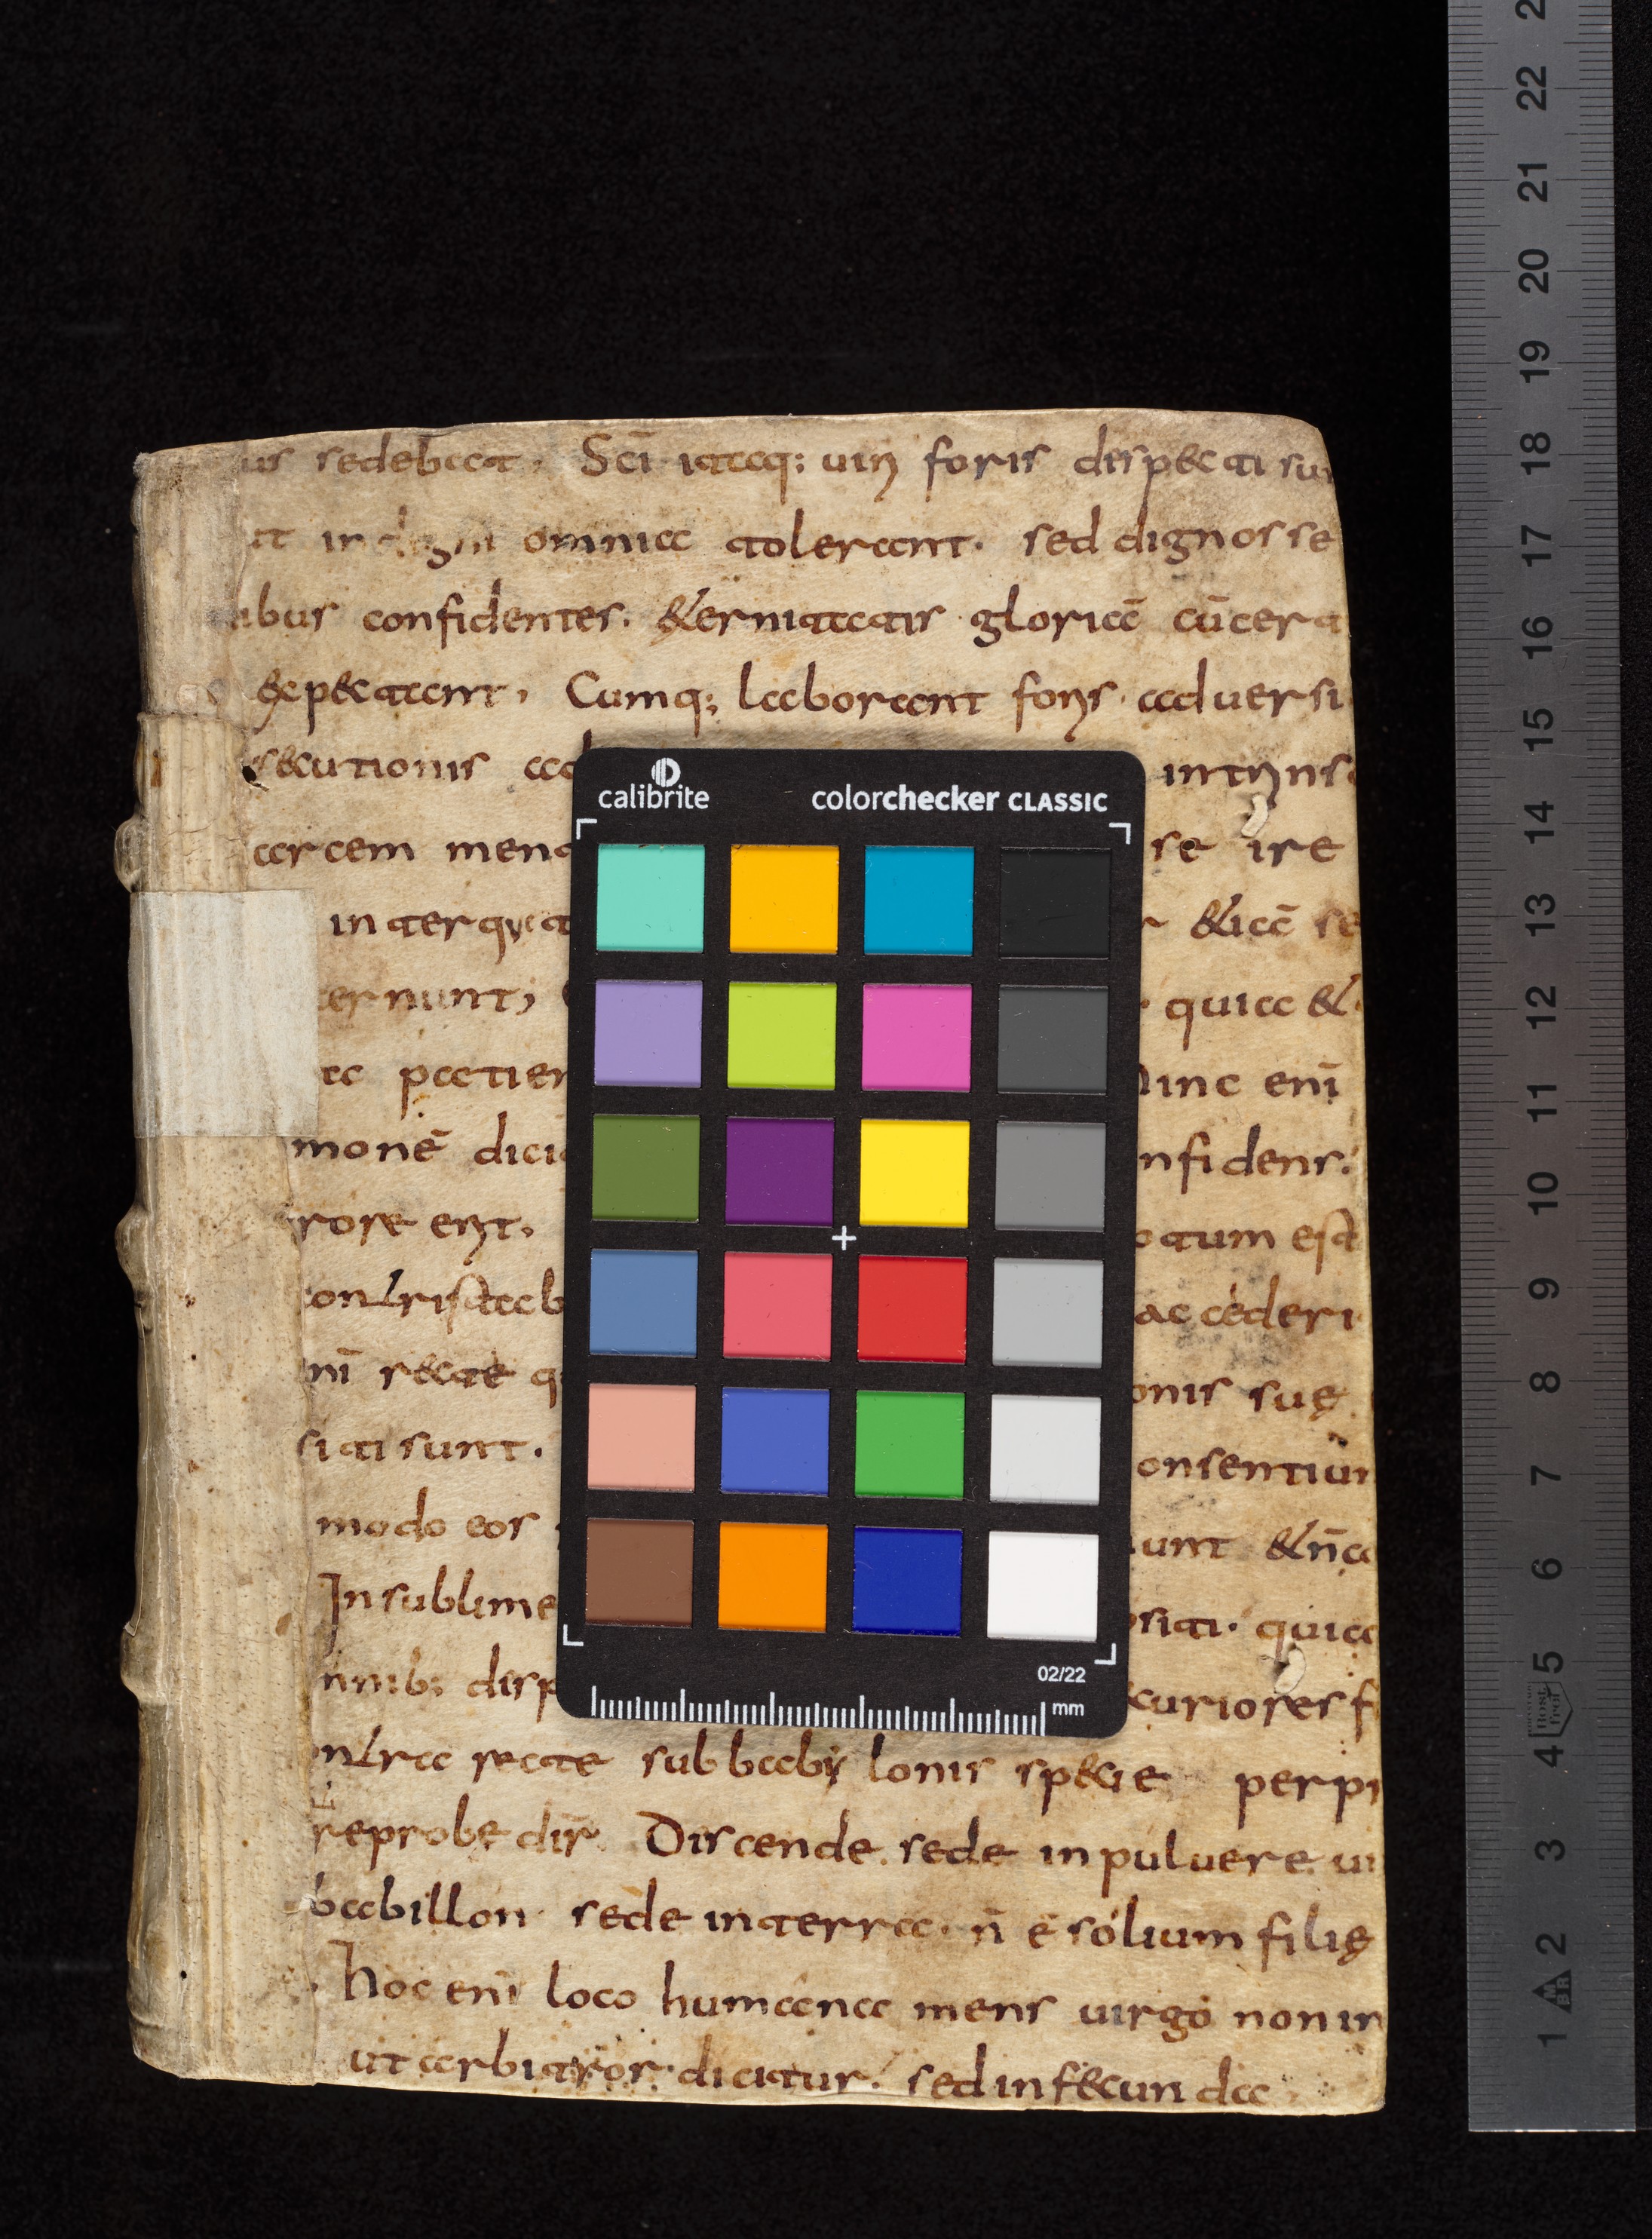 us sedebat. Sc̄i itaq: uiri foris dispecti sun
ut indigni omnia tolerant. sed dignos se
ibus confidentes. &ernitatis gloriā cū certa
expectant. Cumq; laborent foris aduersi
secutionis intrins
arcem ire
in terque &iā se
ternunt; quia &
hinc enī
monē nfidens.
rore erit. otum est
contristab accederi
nī recte onis suę
siti sunt. onsentiun
modo eos unt &n̄a
In sublime quia
nnib; curiores f
ntra recte sub babylonis specie perpr
reprobe dir̄ Discende. sede in puluere. ui
babillon sede in terra. n̄ ē sólium filię
hoc enī loco humana mens uirgo non in
ut arbitror. dicitur. sed infecunda
calibrite
colorchecker CLASSIC
02/22
mm
22
21
20
19
18
17
16
15
14
13
12
11
10
9
8
7
6
5
4
3
2
1